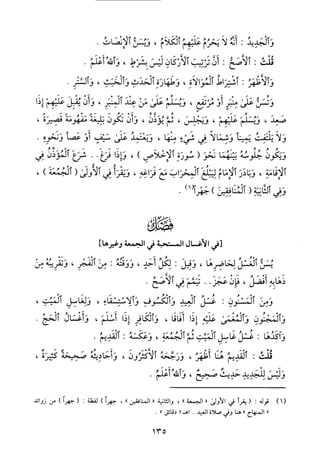 وَٱلْجَدِيدُ : أَنَّهُ لاَ يَحْرُمُ عَلَيْهِمُ ٱلْكَلاَمُ ، وَيُسَنُّ ٱلإِنْصَاتُ .
قُلْتُ : ٱلأَصَحُّ : أَنَّ تَرْتِيبَ ٱلأَرْكَانِ لَيْسَ بِشَرْطٍ ، وَٱللهُ أَعْلَمُ .
وَٱلأَظْهَرُ : ٱشْتِرَاطُ ٱلْمُوَالاَةِ ، وَطَهَارَةِ ٱلْحَدَثِ وَٱلْخَبَثِ ، وَٱلسَّتْرِ .
وَتُسَنُّ عَلَىٰ مِنْبَرٍ أَوْ مُرْتَفِعٍ ، وَيُسَلِّمُ عَلَىٰ مَنْ عِنْدَ ٱلْمِنْبَرِ ، وَأَنْ يُقْبِلَ عَلَيْهِمْ إِذَا
صَعِدَ ، وَيُسَلِّمَ عَلَيْهِمْ ، وَيَجْلِسَ ، ثُمَّ يُؤَذَّنُ ، وَأَنْ تَكُونَ بَلِيغَةً مَفْهُومَةً قَصِيرَةً ،
وَلاَ يَلْتَفِتُ يَمِيناً وَشِمَالاً فِي شَيْءٍ مِنْهَا ، وَيَعْتَمِدُ عَلَىٰ سَيْفٍ أَوْ عَصاً وَنَحْوِهِ .
وَيَكُونُ جُلُوسُهُ بَيْنَهُمَا نَحْوَ ( سُورَةِ ٱلإِخْلاَصِ ) ، وَإِذَا فَرَغَ . . شَرَعَ ٱلْمُؤَذِّنُ فِي
ٱلإِقَامَةِ ، وَبَادَرَ ٱلإِمَامُ لِيَبْلُغَ ٱلْمِحْرَابَ مَعَ فَرَاغِهِ ، وَيَقْرَأُ فِي ٱلأُولَىٰ ( ٱلْجُمُعَةَ ) ،
وَفِي ٱلثَّانِيَةِ ( ٱلْمُنَافِقِينَ ) جَهْراً(١) .
فَصْلٌ
[في الأغسال المستحبة في الجمعة وغيرها]
يُسَنُّ ٱلْغُسْلُ لِحَاضِرِهَا ، وَقِيلَ : لِكُلِّ أَحَدٍ ، وَوَقْتُهُ : مِنَ ٱلْفَجْرِ ، وَتَقْرِيبُهُ مِنْ
ذَهَابِهِ أَفْضَلُ ، فَإِنْ عَجَزَ . . تَيَمَّمَ فِي ٱلأَصَحِّ .
وَمِنَ ٱلْمَسْنُونِ : غُسْلُ ٱلْعِيدِ وَٱلْكُسُوفِ وَٱلاِسْتِسْقَاءِ ، وَلِغَاسِلِ ٱلْمَيْتِ ،
وَٱلْمَجْنُونِ وَٱلْمُغْمَىٰ عَلَيْهِ إِذَا أَفَاقَا ، وَٱلْكَافِرِ إِذَا أَسْلَمَ ، وَأَغْسَالُ ٱلْحَجِّ .
وَآكَدُهَا : غُسْلُ غَاسِلِ ٱلْمَيْتِ ثُمَّ ٱلْجُمُعَةِ ، وَعَكَسَهُ : ٱلْقَدِيمُ .
قُلْتُ : ٱلْقَدِيمُ هُنَا أَظْهَرُ ، وَرَجَّحَهُ ٱلأَكْثَرُونَ ، وَأَحَادِيثُهُ صَحِيحَةٌ كَثِيرَةٌ ،
وَلَيْسَ لِلْجَدِيدِ حَدِيثٌ صَحِيحٌ ، وَٱللهُ أَعْلَمُ .
(١) قوله : ( يقرأ في الأولىٰ « الجمعة » ، والثانية « المنافقين » ، جهراً ) لفظة : ( جهراً ) من زوائد
« المنهاج » هنا وفي صلاة العيد . اهـ « دقائق » .
١٣٥